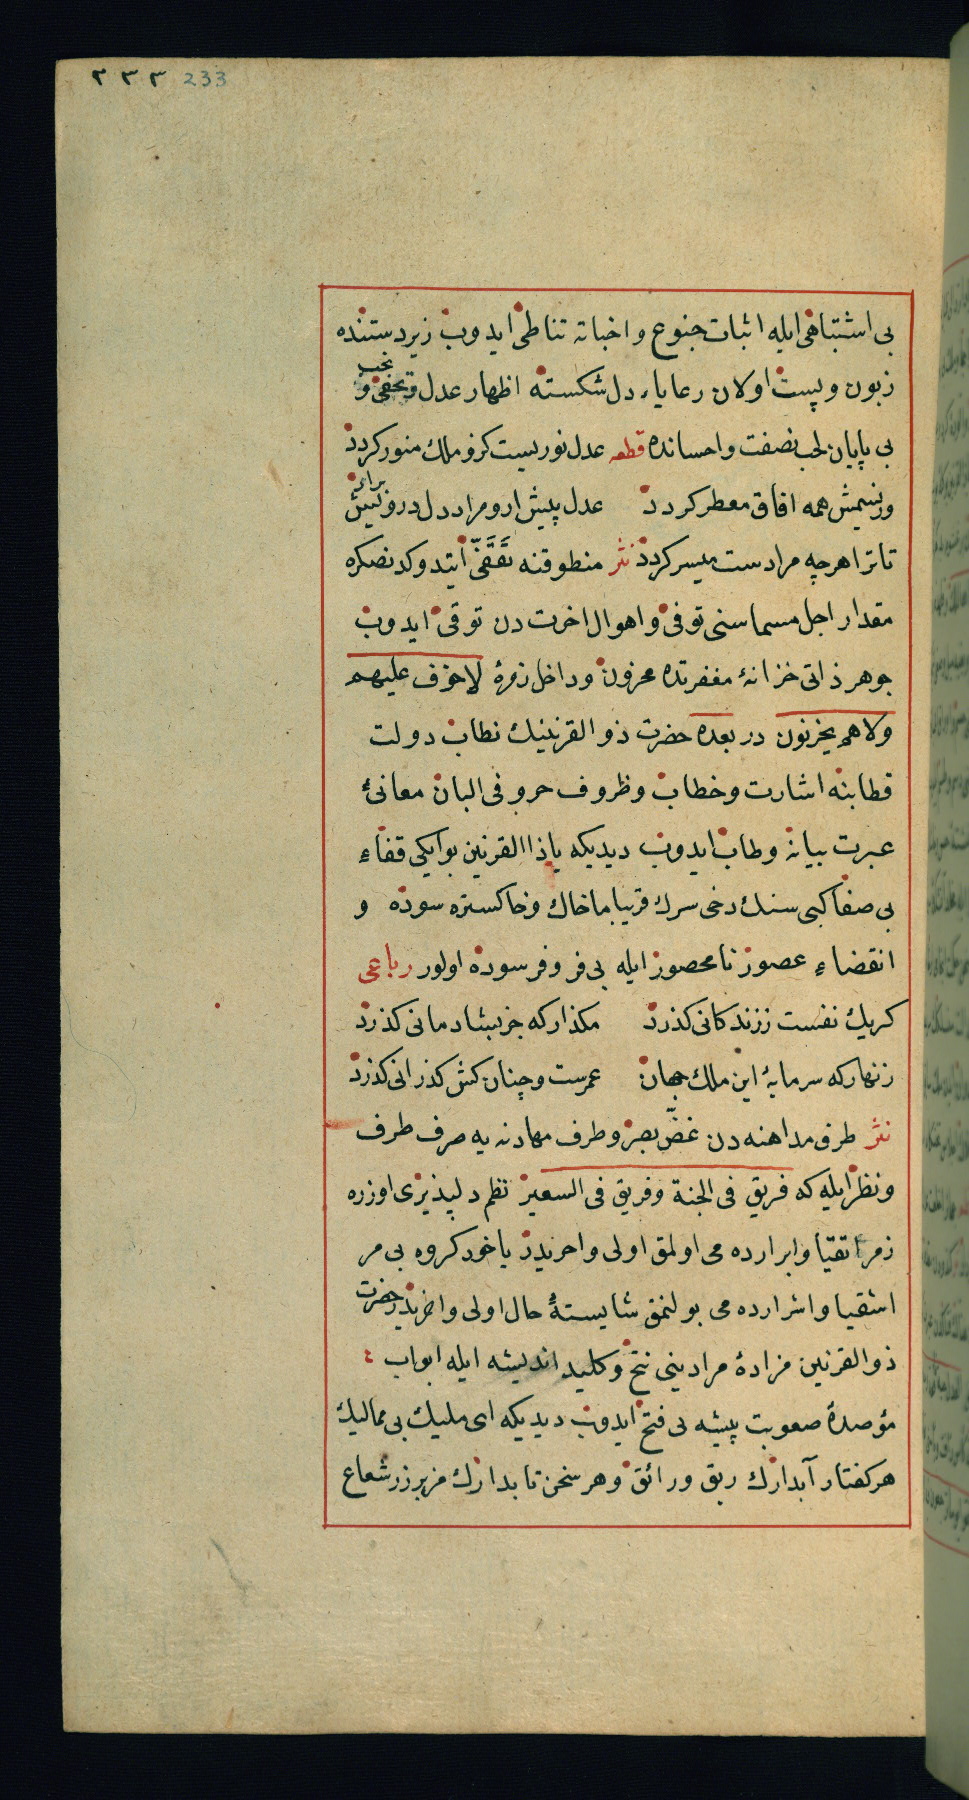 ٢٣٣ 233
بی اشتباهی ایله اثبات جنوع و اخباته تناطی ایدوب زیردستنده
زبون و پست اولان رعایاء دل شکسته اظهار عدل و تحفی و
بی پایان لحب نصفت و احسانده قطعه عدل نوریست کزو ملك منور کردد
وز نسیمش همه افاق معطر کردد عدل پیش ار و مراد دل درویش برار
تا ترا هرچه مرادست میسر کردد نثر منطوقنه تَقَفَّی ایتدوکدنصکره
مقدار اجل مسماسنی توفی و اهوال اخرت دن توقی ایدوب
جوهر ذاتی خزانهٔ مغفرتده مخزون و داخل زمرهٔ لاخوف علیهم
ولاهم یحزنون در بعده حضرت ذوالقرنینك نطاب دولت
قطابنه اشارت و خطاب و ظروف حروفی البان معانیٔ
عبرت بیانه وطاب ایدوب دیدیکه یاذا القرنین بو ایکی قفاء
بی صفا کبی سنك دخی سرك قریبا ما خاك و خاکستره سوده و
انقضاء عصور نامحصور ایله بی فر و فرسوده اولور رباعی
کریك نفست ززندکانی کذرد مکذار که جز بشادمانی کذرد
زنهار که سرمایهٔ این ملك جهان عمرست و چنان کش کذرانی کذرد
نثر طرف مداهنه دن غضّ بصر و طرف مهادنه یه صرف طرف
و نظر ایله که فریق فی الجنة وفریق فی السعیر نظم دلپذیری اوزره
زمرۀ اتقیا و ابرارده می اولمق اولی و احریدر یا خود کروه بی مر
اشقیا و اشرارده می بولنمق شایستهٔ حال اولی و اخریدر حضرت
ذوالقرنین مزادهٔ مرادینی نتح و کلید اندیشه ایله ابواب
مؤصدهٔ صعوبت پیشه یی فتح ایدوب دیدیکه ای ملیك بی ممالیك
هر کفتار آبدارك ریق و رائق و هر سخن تابدارك مزبر زر شعاع